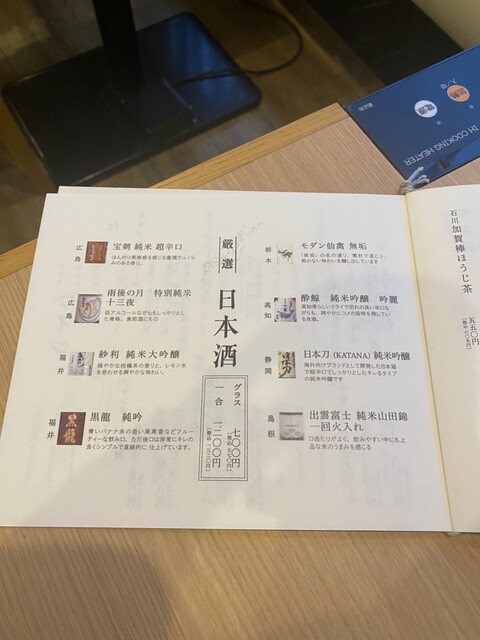 厳選 日本酒
グラス 七〇〇円
(税込 七七〇円)
一合 一二〇〇円
(税込 一三二〇円)
広島
宝剣 純米 超辛口
ほんのり果実感を感じる農潤でふくら
みのある香り。
広島
雨後の月 特別純米
十三夜
低アルコールながらもしっかりとし
た骨格。食前酒にも◎
福井
紗利 純米大吟醸
穏やかな柑橘系の香りと、レモン水
を思わせる爽やかな味わい。
福井
黒龍
黒龍 純吟
青いバナナ系の若い果実香などフルー
ティーな飲み口、ただ後口は非常にキレの
良くシンプルで直線的に 仕上げています。
栃木
モダン仙禽 無垢
「無垢」の名の通り、素朴で混じり
気のない味わいを醸し出しています
高知
酔鯨 純米吟醸 吟麗
高知済らしいドライで切れの良い辛口な
がらも、爽やかにコメの旨味を残してい
る良酒。
静岡
日本刀
日本刀 (KATANA) 純米吟醸
海外向けブランドとして開発した日本酒
で超辛口でしっかりとしたキレるタイプ
の純米吟醸です
島根
出雲富士 純米山田錦
一回火入れ
口当たりがよく、飲みやすい中にも上
品な米のうまみを感じる
石川 加賀棒ほうじ茶
五五〇円
(税込 六〇五円)
IH COOKING HEATER